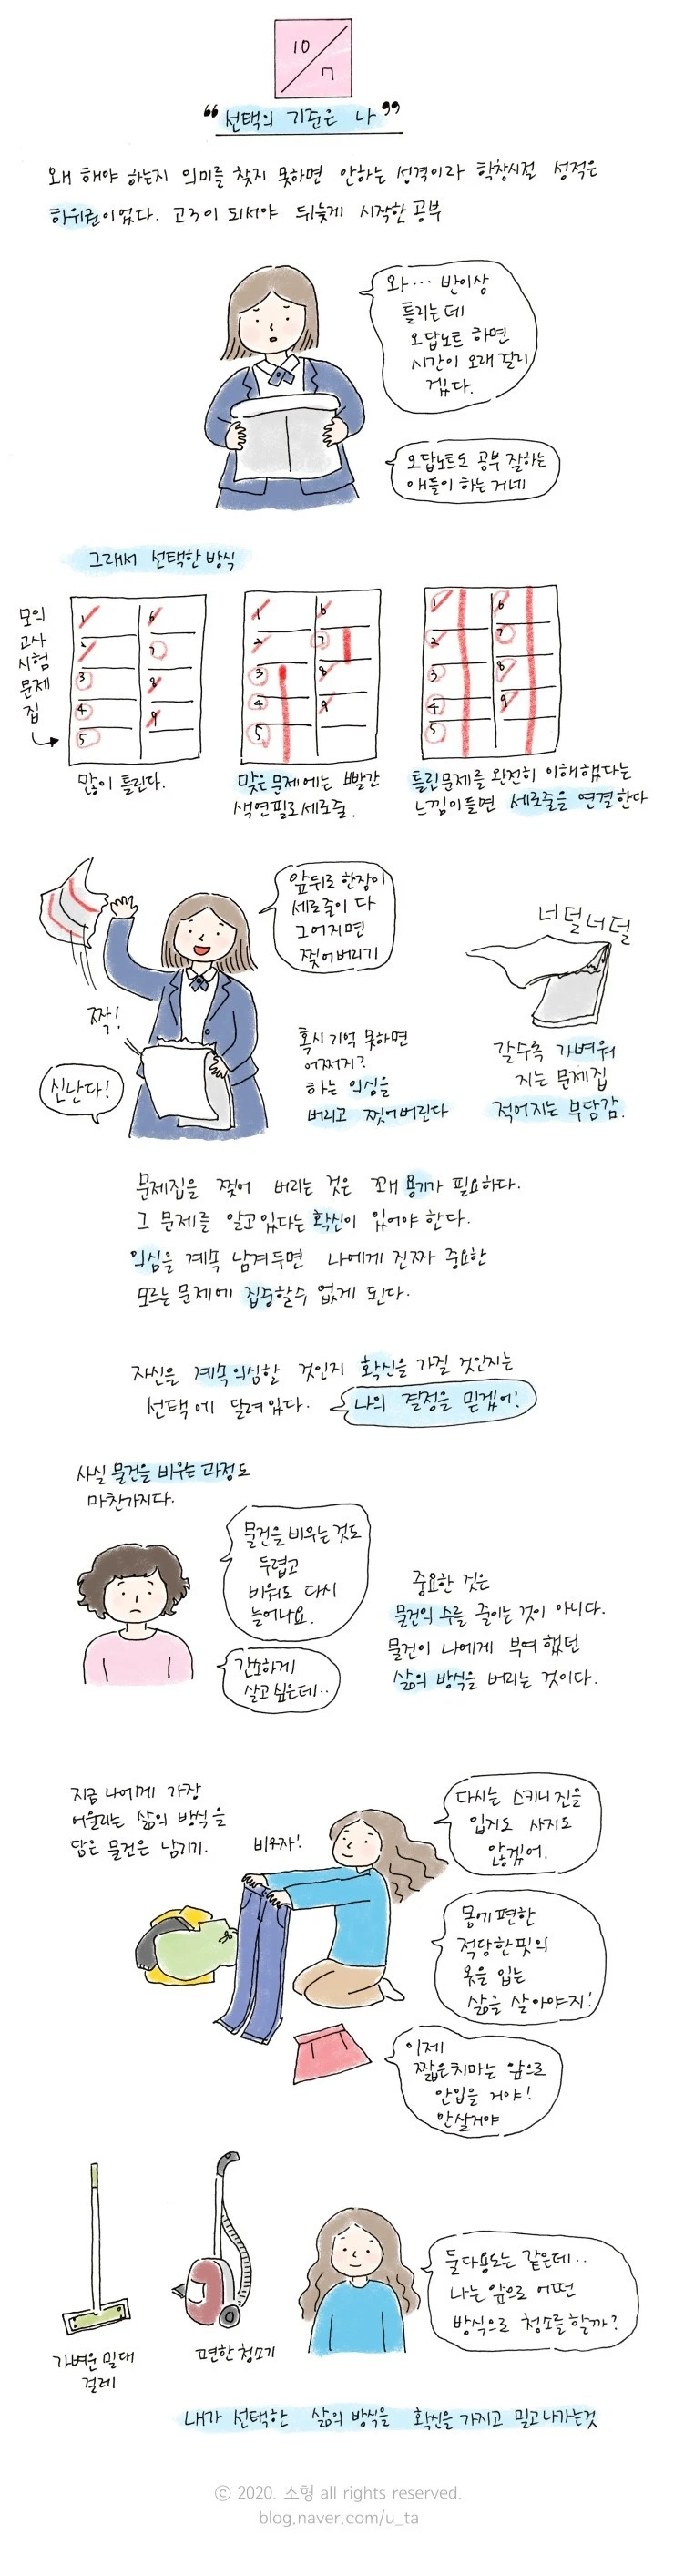 10
7
"선택의 기준은 나"
왜 해야 하는지 의미를 찾지 못하면 안하는 성격이라 학창시절 성적은
하위권이었다. 고3이 되서야 뒤늦게 시작한 공부
와... 반이상
틀리는데
오답노트 하면
시간이 오래 걸리
겠다.
오답노트도 공부 잘하는
애들이 하는거네
그래서 선택한 방식
모의
고사
시험
문제
집
1
2
3
4
5
6
7
8
9
많이 틀린다.
1
2
3
4
5
6
7
8
9
맞은 문제에는 빨간
색연필로 세로줄.
1
2
3
4
5
6
7
8
9
틀린문제를 완전히 이해했다는
느낌이들면 세로줄을 연결한다
앞뒤로 한장이
세로줄이 다
그어지면
찢어버리기
짝!
신난다!
혹시 기억 못하면
어쩌지?
하는 의심을
버리고 찢어버린다
너덜너덜
갈수록 가벼워
지는 문제집
적어지는 부담감.
문제집을 찢어 버리는 것은 꽤 용기가 필요하다.
그 문제를 알고있다는 확신이 있어야 한다.
의심을 계속 남겨두면 나에게 진짜 중요한
모르는 문제에 집중할수 없게 된다.
자신을 계속 의심할 것인지 확신을 가질 것인지는
선택에 달려있다.
나의 결정을 믿겠어!
사실 물건을 비우는 과정도
마찬가지다.
물건을 비우는 것도
두렵고
비워도 다시
늘어나요.
간소하게
살고 싶은데..
중요한 것은
물건의 수를 줄이는 것이 아니다.
물건이 나에게 부여했던
삶의 방식을 버리는 것이다.
지금 나에게 가장
어울리는 삶의 방식을
담은 물건은 남기기.
비우자!
다시는 스키니진을
입지도 사지도
않겠어.
몸에 편한
적당한핏의
옷을 입는
삶을 살아야지!
이제
짧은치마는 앞으로
안입을 거야!
안살거야
가벼운 밀대
걸레
편한 청소기
둘다용도는 같은데..
나는 앞으로 어떤
방식으로 청소를 할까?
내가 선택한 삶의 방식을 확신을 가지고 밀고나가는것
© 2020. 소형 all rights reserved.
blog.naver.com/u_ta